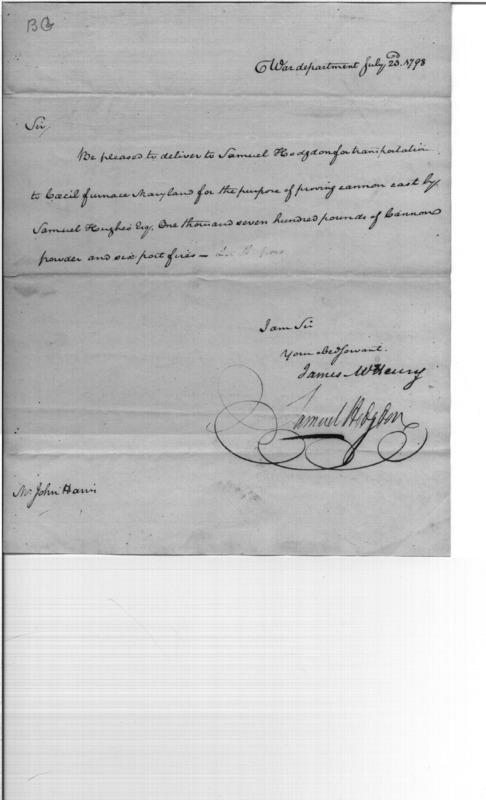 BG
War department July 23d. 1798
Sir,
Be pleased to deliver to Samuel Hodgdon for transportation
to Cecil furnace Maryland for the purpose of proving cannon cast by
Samuel Hughes Esq. One thousand seven hundred pounds of Cannon
powder and six port fires —
I am Sir
Your obed servant.
James McHenry
Samuel Hodgdon
Mr. John Harris